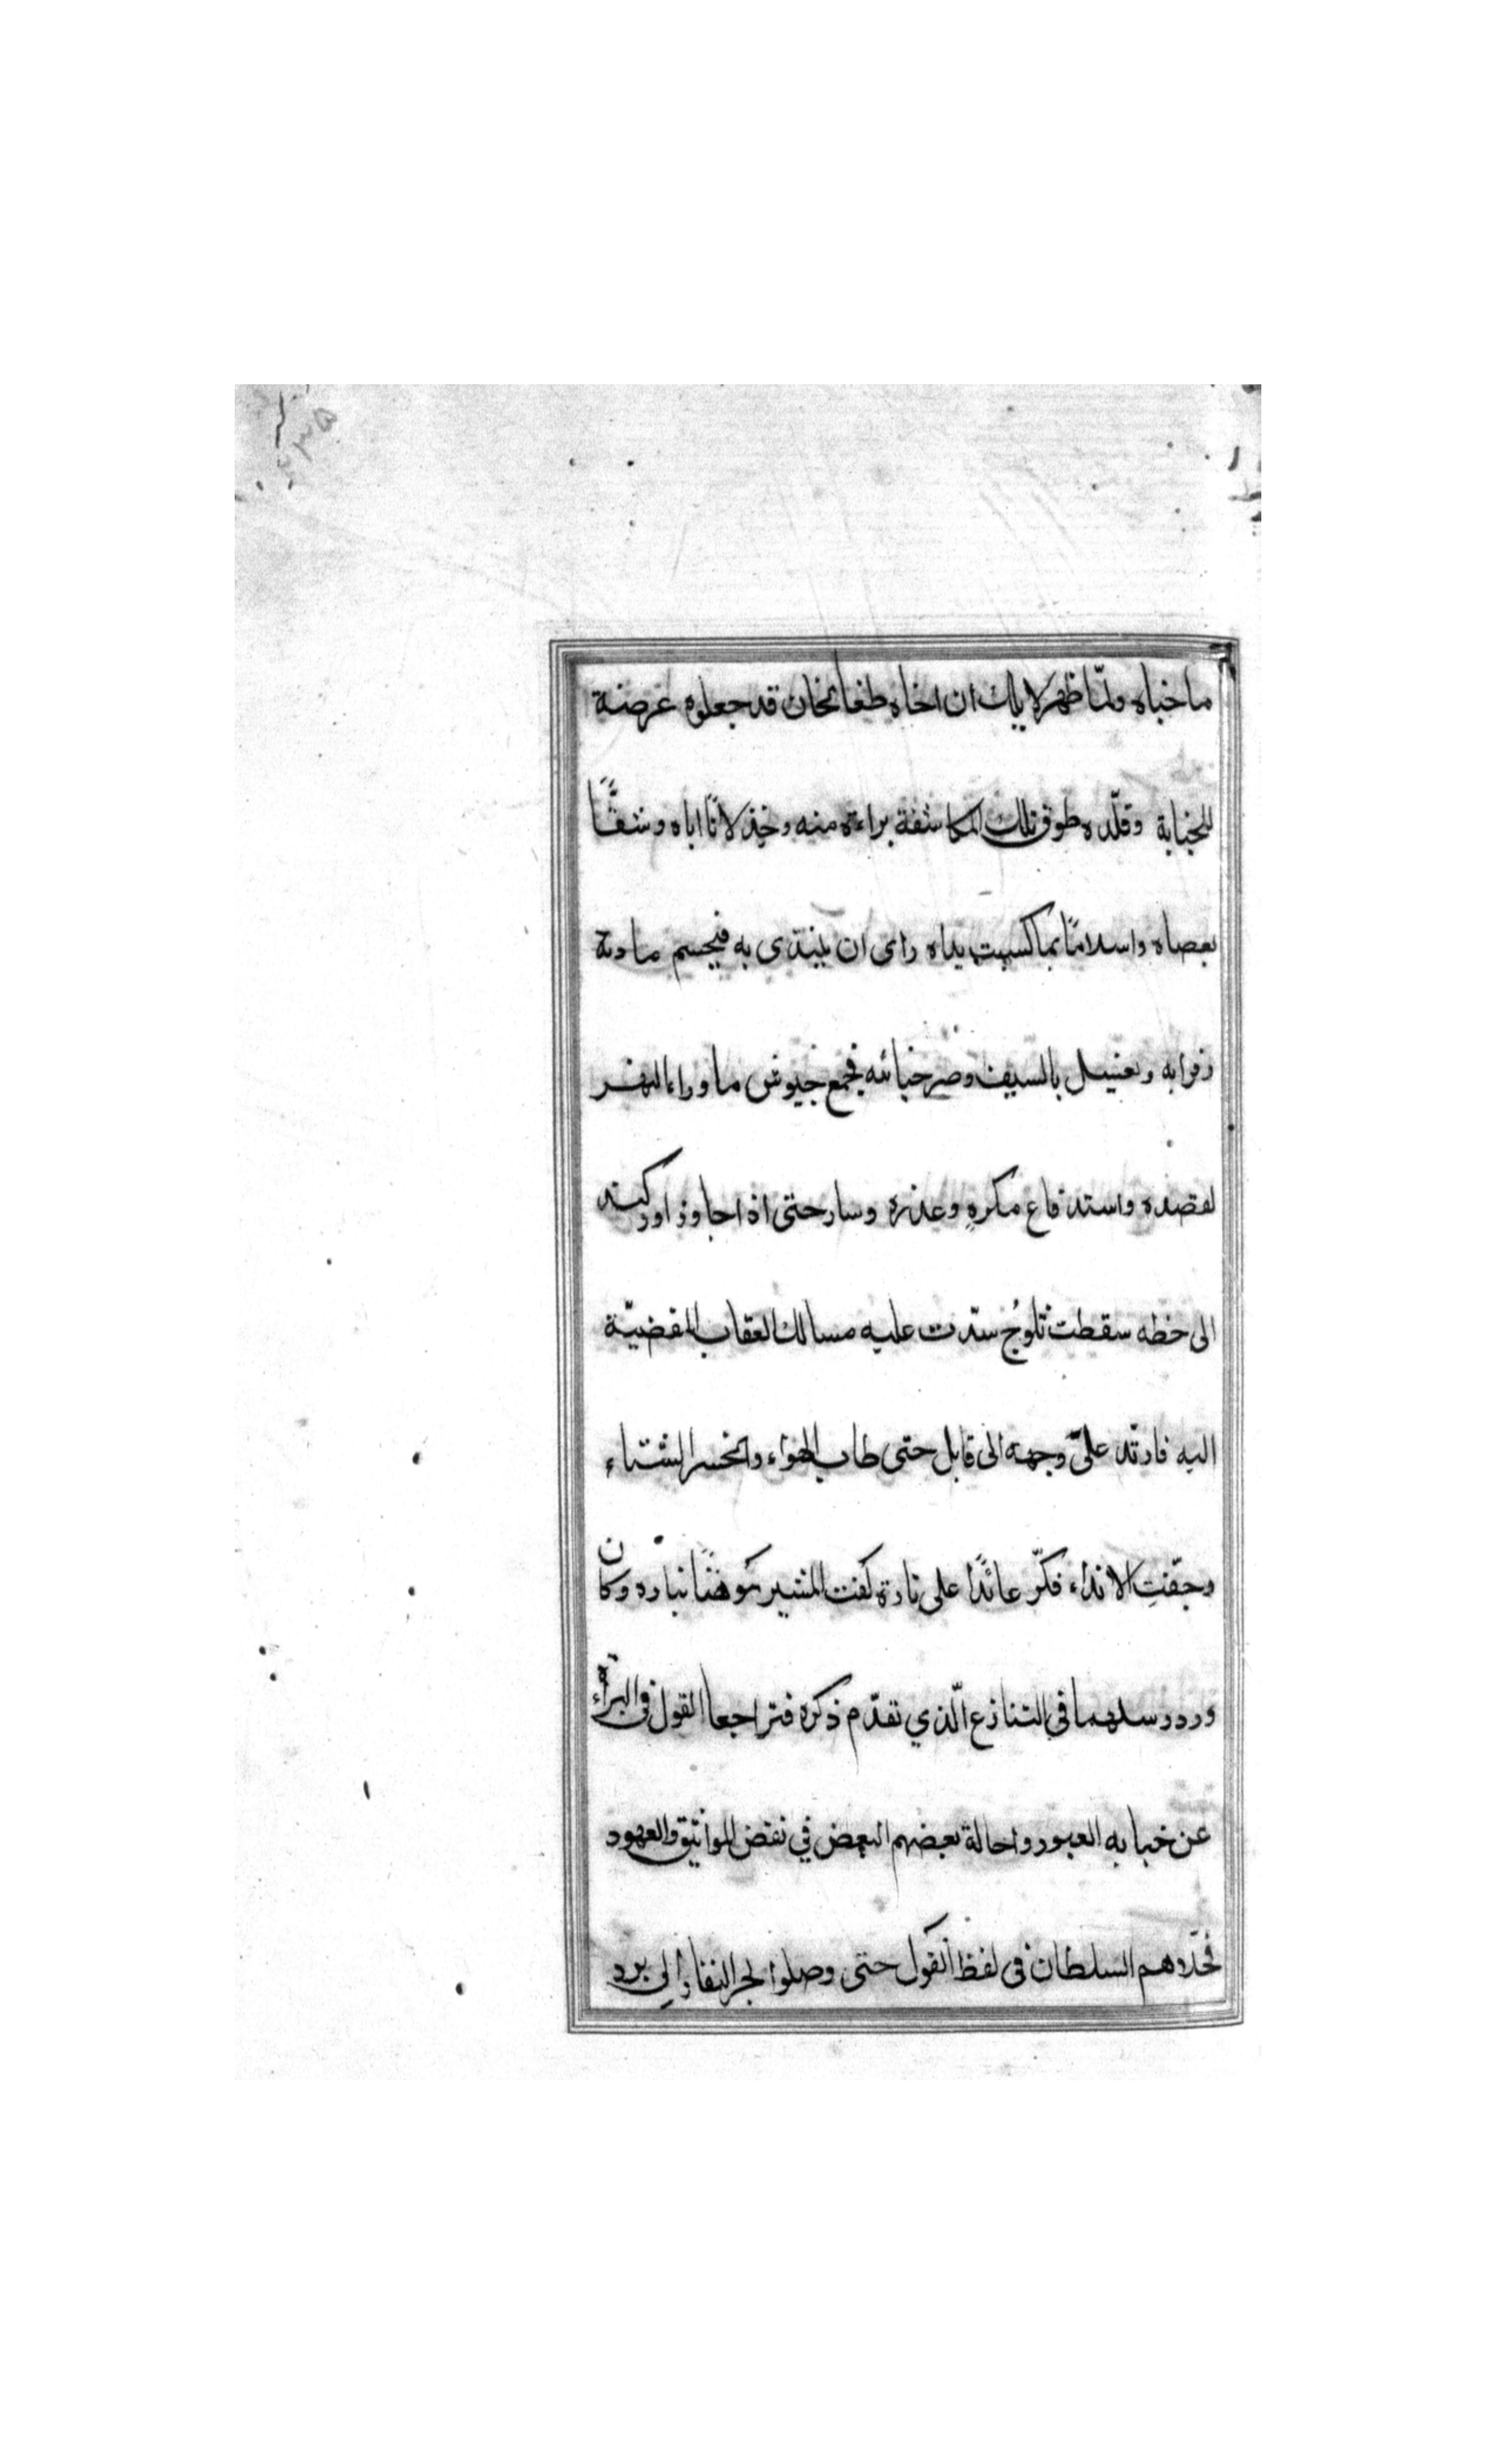 ما خباه ولمّا ظهر لايلك ان اخاه طغانخان قد جعلوه عرضة
للخيابة وقلّده طوق تلك المكاشفة براءة منه وخذلانًا اباه وشقًّا
بعصاه واسلامًا بما كسبت يداه راى ان يبتدى به فيحسم مادة
بالسيف وضر خبائثه فجمع جيوش ماوراء النهر
لقصده واستدفاع مكرهِ وعذره وسار حتى اذا جاوز اوزكند
الى خطه سقطت ثلوُج سدّت عليه مسالك العقاب المفضيّة
اليه فارتد علىّ وجهه الى قابل حتى طاب الهواء وانحسر الشتاء
وجفّت الانداء فكرّ عائدًا على تارة كفت المشير نباره وكان
ورد رسلهما فى التنازع الّذي تقدّم ذكره فتراجعا القول فى البراء
عن خيابه العبور واحالة بعضهم البعض في نقض المواثيق والعهود
فخلاهم السلطان فى لفظ القول حتى وصلوا لجر النفاذ الى برد